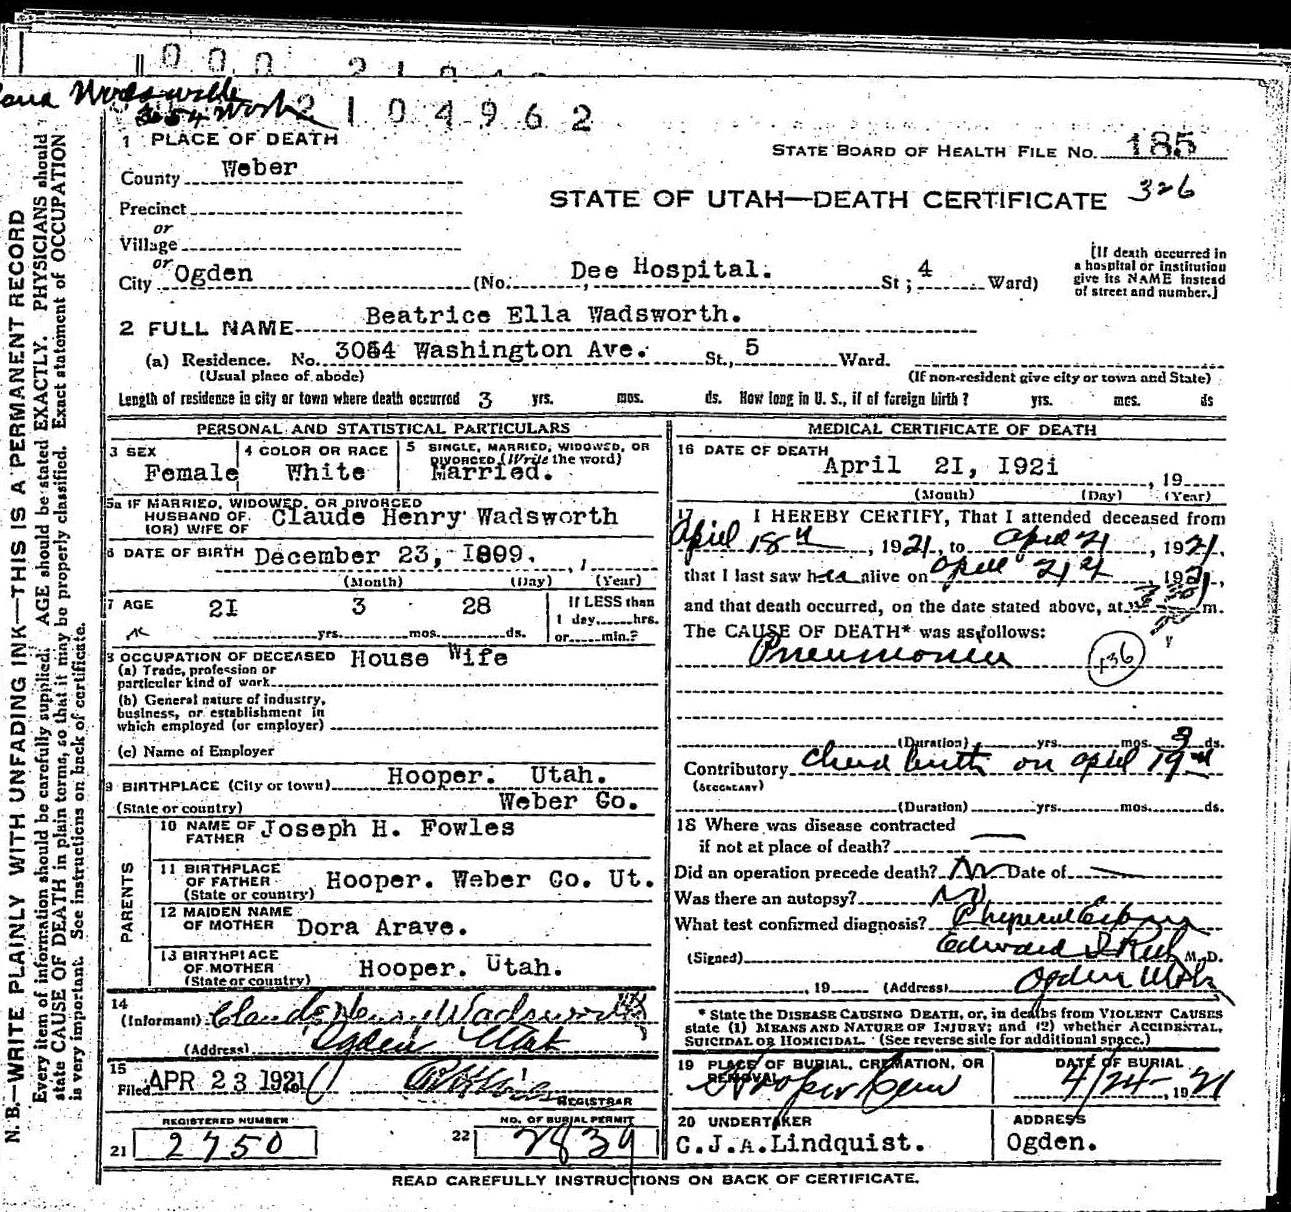 2104962
1 PLACE OF DEATH
STATE BOARD OF HEALTH FILE NO. 185
County Weber
STATE OF UTAH—DEATH CERTIFICATE 326
Precinct
or
Village
or
City Ogden (No. Dee Hospital. St; 4 Ward)
[If death occurred in a hospital or institution give its NAME instead of street and number.]
2 FULL NAME Beatrice Ella Wadsworth.
(a) Residence. No. 3054 Washington Ave. St., 5 Ward.
(Usual place of abode) (If non-resident give city or town and State)
Length of residence in city or town where death occurred 3 yrs. mos. ds. How long in U. S., if of foreign birth? yrs. mos. ds
PERSONAL AND STATISTICAL PARTICULARS
3 SEX Female
4 COLOR OR RACE White
5 SINGLE, MARRIED, WIDOWED, OR DIVORCED (Write the word) Married.
5a IF MARRIED, WIDOWED, OR DIVORCED
HUSBAND OF
(OR) WIFE OF Claude Henry Wadsworth
6 DATE OF BIRTH December 23, I899.
(Month) (Day) (Year)
7 AGE 2I yrs. 3 mos. 28 ds.
If LESS than
1 day,......hrs.
or......min.?
8 OCCUPATION OF DECEASED House Wife
(a) Trade, profession or
particular kind of work
(b) General nature of industry,
business, or establishment in
which employed (or employer)
(c) Name of Employer
9 BIRTHPLACE (City or town) Hooper. Utah.
(State or country) Weber Co.
PARENTS
10 NAME OF FATHER Joseph H. Fowles
11 BIRTHPLACE OF FATHER (State or country) Hooper. Weber Co. Ut.
12 MAIDEN NAME OF MOTHER Dora Arave.
13 BIRTHPLACE OF MOTHER (State or country) Hooper. Utah.
14
(Informant) Claude Henry Wadsworth
(Address) Ogden Utah
15
Filed APR 23 1921
REGISTRAR
REGISTERED NUMBER
21 2750
NO. OF BURIAL PERMIT
22 2839
MEDICAL CERTIFICATE OF DEATH
16 DATE OF DEATH April 2I, I92i , 19
(Month) (Day) (Year)
17 I HEREBY CERTIFY, That I attended deceased from
April 18th, 1921, to April 21, 1921,
that I last saw her alive on April 21st, 1921,
and that death occurred, on the date stated above, at m.
The CAUSE OF DEATH* was as follows:
Pneumonia 136
(Duration) yrs. mos. 3 ds.
Contributory Child birth on April 19th
(SECONDARY)
(Duration) yrs. mos. ds.
18 Where was disease contracted
if not at place of death?
Did an operation precede death? No Date of
Was there an autopsy? No
What test confirmed diagnosis? Physical
(Signed) Edward I Rich M.D.
, 19 (Address) Ogden Utah
* State the DISEASE CAUSING DEATH, or, in deaths from VIOLENT CAUSES
state (1) MEANS AND NATURE OF INJURY; and (2) whether ACCIDENTAL,
SUICIDAL OR HOMICIDAL. (See reverse side for additional space.)
19 PLACE OF BURIAL, CREMATION, OR REMOVAL Hooper Cem
DATE OF BURIAL 4/24, 1921
20 UNDERTAKER C.J.A.Lindquist.
ADDRESS Ogden.
READ CAREFULLY INSTRUCTIONS ON BACK OF CERTIFICATE.
N. B.—WRITE PLAINLY WITH UNFADING INK—THIS IS A PERMANENT RECORD
Every item of information should be carefully supplied. AGE should be stated EXACTLY. PHYSICIANS should
state CAUSE OF DEATH in plain terms, so that it may be properly classified. Exact statement of OCCUPATION
is very important. See instructions on back of certificate.